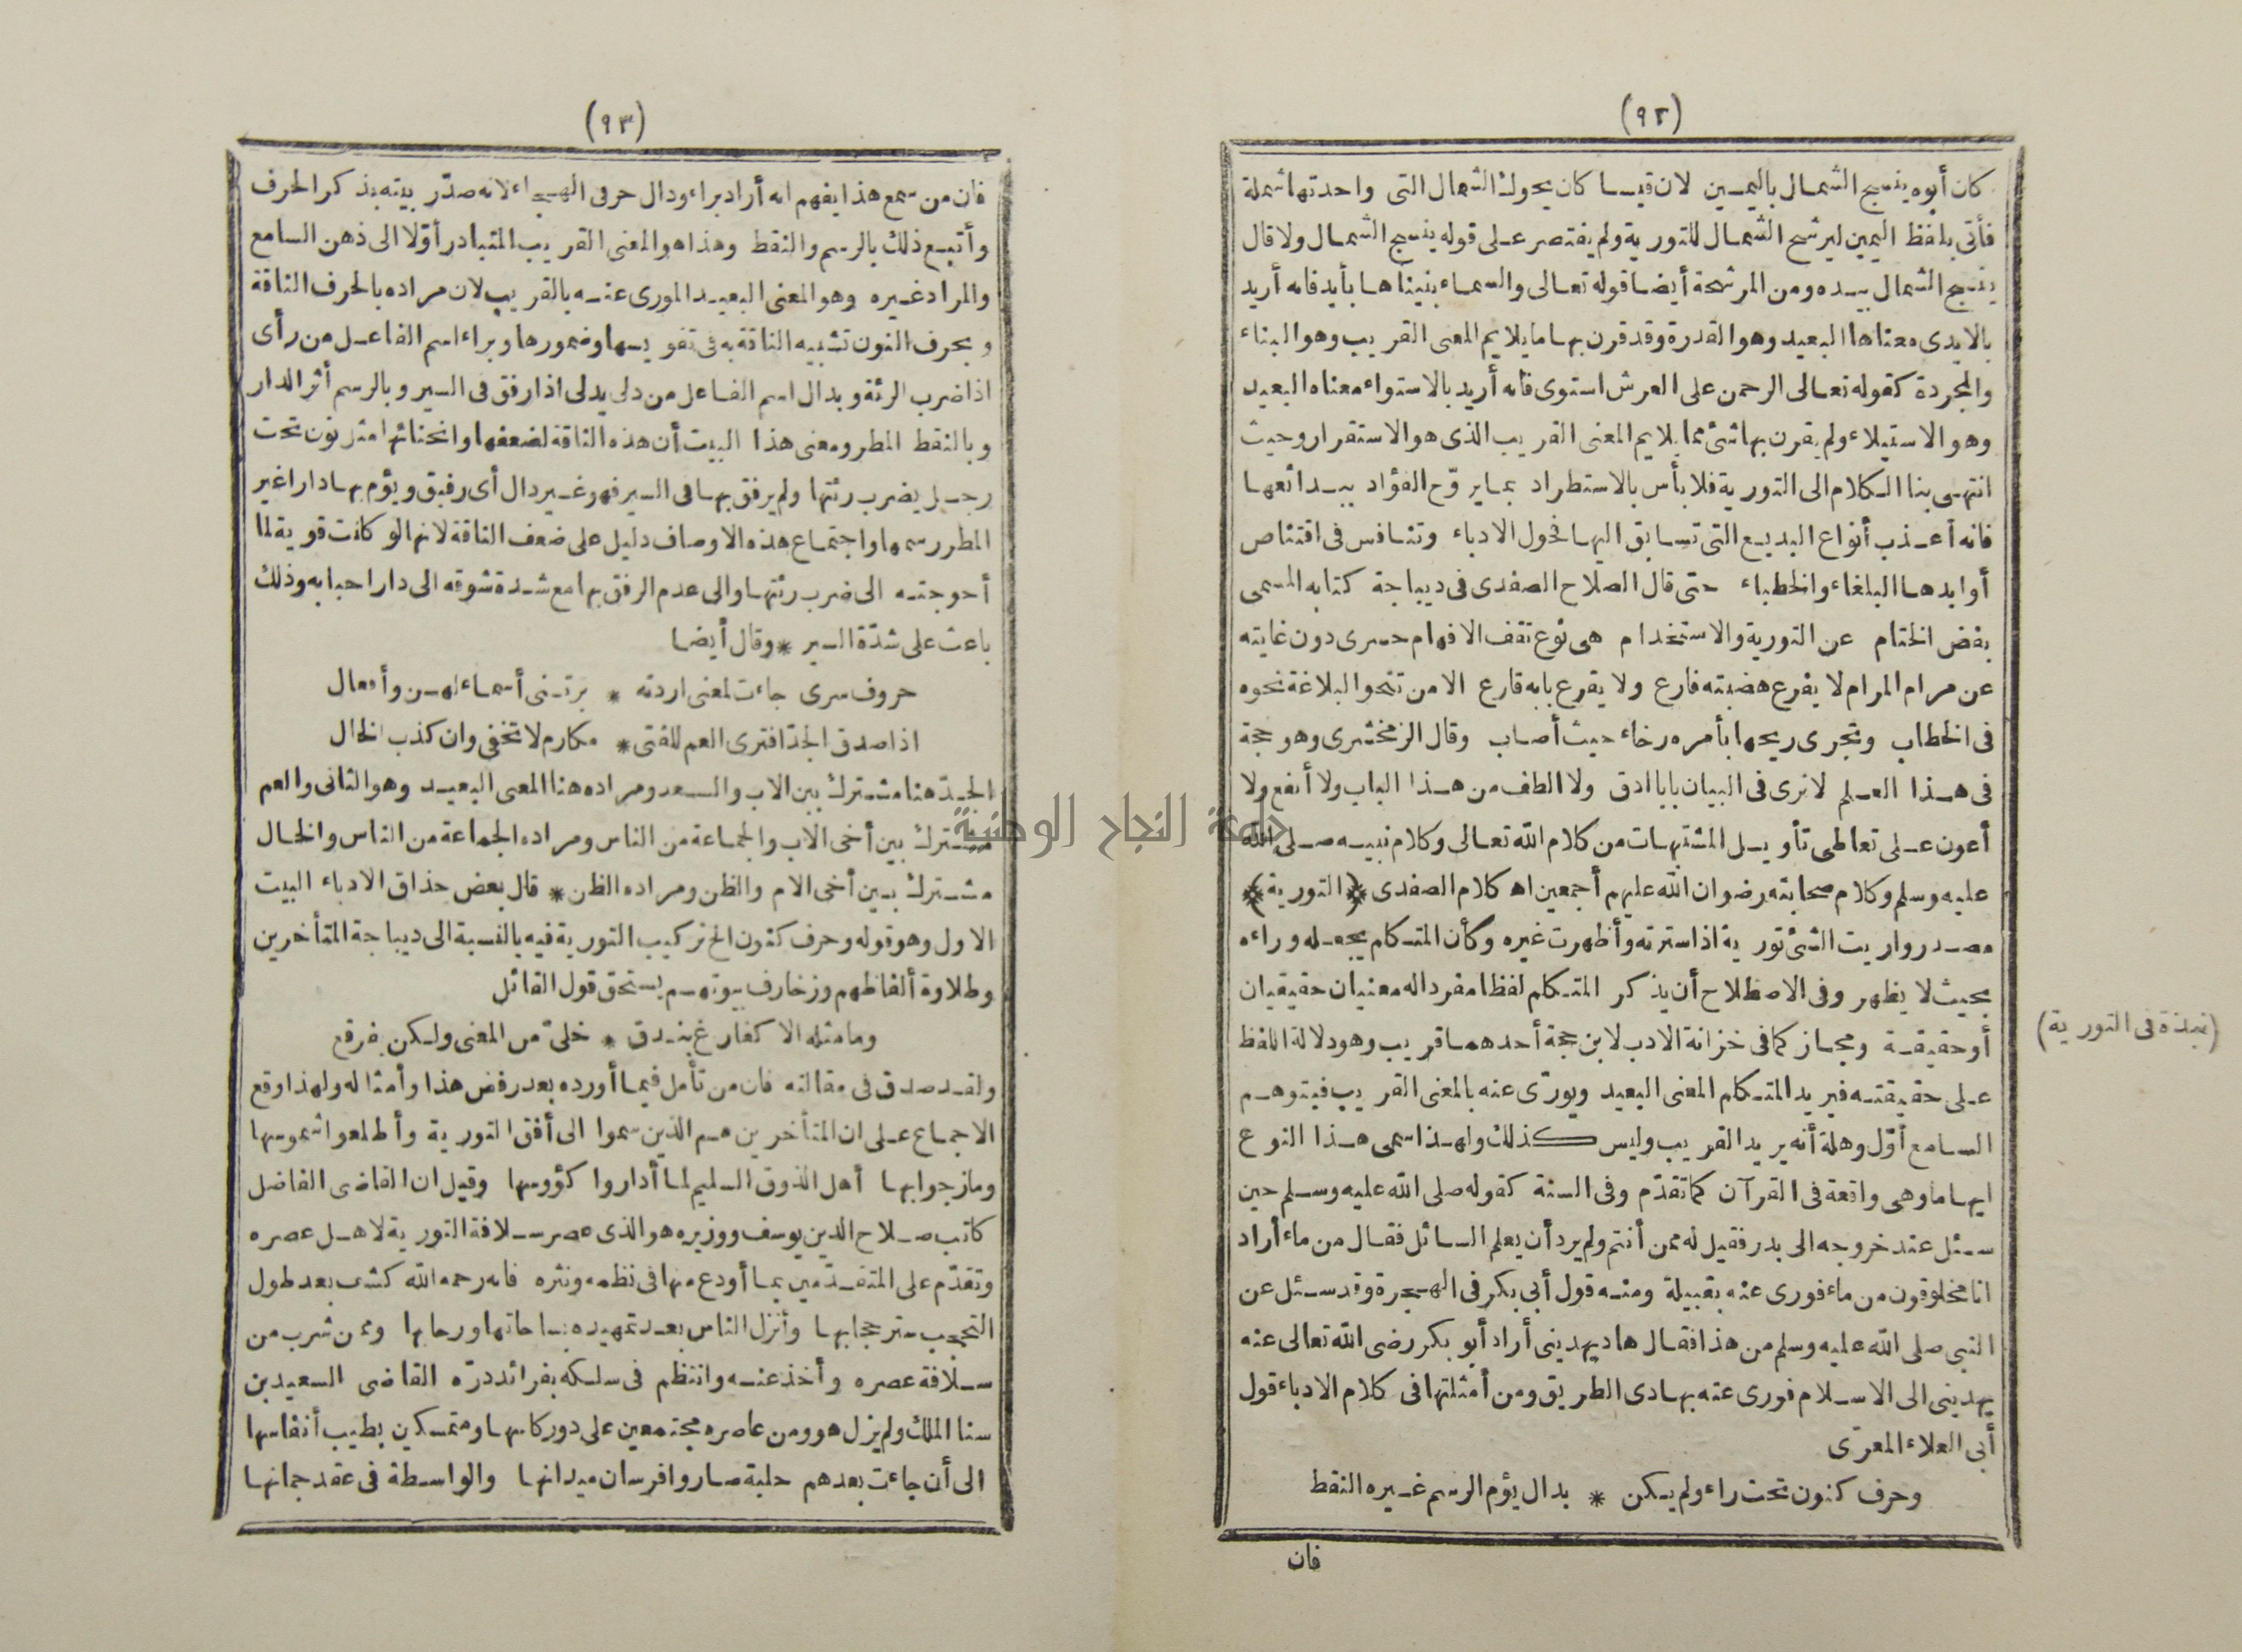 (٩٢)
كان أبوه ينسج الشمال باليمين لان قيسا كان يحوك الشمال التى واحدتها شملة
فأتى بلفظ اليمين ليرشح الشمال للتورية ولم يقتصر على قوله ينسج الشمال ولا قال
ينسج الشمال بيده ومن المرشحة أيضا قوله تعالى والسماء بنيناها بأيد فانه أريد
بالايدى معناها البعيد وهو القدرة وقد قرن بها ما يلايم المعنى القريب وهو البناء
والمجردة كقوله تعالى الرحمن على العرش استوى فانه أريد بالاستواء معناه البعيد
وهو الاستيلاء ولم يقرن بها شئ مما يلايم المعنى القريب الذى هو الاستقرار وحيث
انتهى بنا الكلام الى التورية فلا بأس بالاستطراد بما يروّح الفؤاد ببدائعها
فانه أعذب أنواع البديع التى تسابق اليها فحول الادباء وتنافس فى اقتناص
أوابدها البلغاء والخطباء حتى قال الصلاح الصفدى فى ديباجة كتابه المسمى
بفض الختام عن التورية والاستخدام هى نوع تقف الافهام حسرى دون غايته
عن مرام المرام لا يفرع هضبته فارع ولا يقرع بابه قارع الا من تنحو البلاغة نحوه
فى الخطاب وتجرى ريحها بأمره رخاء حيث أصاب وقال الزمخشرى وهو حجة
فى هذا العلم لا نرى فى البيان بابا ادق ولا الطف من هذا الباب ولا أنفع ولا
أعون على تعاطى تأويل المشتبهات من كلام الله تعالى وكلام نبيه صلى الله
عليه وسلم وكلام صحابته رضوان الله عليهم أجمعين اه كلام الصفدى ﴿التورية﴾
مصدر واريت الشئ تورية اذا سترته وأظهرت غيره وكأن المتكلم يجعله وراءه
بحيث لا يظهر وفى الاصطلاح أن يذكر المتكلم لفظا مفردا له معنيان حقيقيان
أو حقيقة ومجاز كما فى خزانة الادب لابن حجة أحدهما قريب وهو دلالة اللفظ
على حقيقته فيريد المتكلم المعنى البعيد ويورّى عنه بالمعنى القريب فيتوهم
السامع أوّل وهلة أنه يريد القريب وليس كذلك ولهذا سمى هذا النوع
ايهاما وهى واقعة فى القرآن كما تقدّم وفى السنة كقوله صلى الله عليه وسلم حين
سئل عند خروجه الى بدر فقيل له ممن أنتم ولم يرد أن يعلم السائل فقال من ماء أراد
انا مخلوقون من ماء فورى عنه بقبيلة ومنه قول أبى بكر فى الهجرة وقد سئل عن
النبى صلى الله عليه وسلم من هذا فقال هاد يهدينى أراد أبو بكر رضى الله تعالى عنه
يهدينى الى الاسلام فورى عنه بهادى الطريق ومن أمثلتها فى كلام الادباء قول
أبى العلاء المعرّى
وحرف كنون تحت راء ولم يكن * بدال يؤم الرسم غيره النقط
فان
(نبذة فى التورية)
(٩٣)
فان من سمع هذا يفهم انه أراد براء ودال حرفى الهجاء لانه صدّر بيته بذكر الحرف
وأتبع ذلك بالرسم والنقط وهذا هو المعنى القريب المتبادر أوّلا الى ذهن السامع
والمراد غيره وهو المعنى البعيد المورى عنه بالقريب لان مراده بالحرف الناقة
وبحرف النون تشبيه الناقة به فى تقويسها وضمورها وبراء اسم الفاعل من رأى
اذا ضرب الرئة وبدال اسم الفاعل من دلى يدلى اذا رفق فى السير وبالرسم أثر الدار
وبالنقط المطر ومعنى هذا البيت أن هذه الناقة لضعفها وانحنائها مثل نون تحت
رجل يضرب رئتها ولم يرفق بها فى السير فهو غير دال أى رفيق ويؤم بها دارا غير
المطر رسمها واجتماع هذه الاوصاف دليل على ضعف الناقة لانها لو كانت قوية لما
أحوجته الى ضرب رئتها والى عدم الرفق بها مع شدة شوقه الى دار احبابه وذلك
باعث على شدّة السير * وقال أيضا
حروف سرى جاءت لمعنى اردته * برتنى أسماء لهن وأفعال
اذا صدق الجدّ افترى العم للفتى * مكارم لا تخفى وان كذب الخال
الجدّ هنا مشترك بين الاب والسعد ومراده هنا المعنى البعيد وهو الثانى والعم
مشترك بين أخى الاب والجماعة من الناس ومراده الجماعة من الناس والخال
مشترك بين أخى الام والظن ومراده الظن * قال بعض حذاق الادباء البيت
الاول وهو قوله وحرف كنون الخ تركيب التورية فيه بالنسبة الى ديباجة المتأخرين
وطلاوة ألفاظهم وزخارف بيوتهم يستحق قول القائل
وما مثله الا كفارغ بندق * خلىّ من المعنى ولكن يفرقع
ولقد صدق فى مقالته فان من تأمل فيما أورده بعد رفض هذا وأمثاله ولهذا وقع
الاجماع على ان المتأخرين هم الذين سموا الى أفق التورية وأطلعوا شموسها
ومازجوا بها أهل الذوق السليم لما أداروا كؤوسها وقيل ان القاضى الفاضل
كاتب صلاح الدين يوسف ووزيره هو الذى عصر سلافة التورية لاهل عصره
وتقدّم على المتقدّمين بما أودع منها فى نظمه ونثره فانه رحمه الله كشف بعد طول
التحجب ستر حجابها وأنزل الناس بعد تمهيده بساحاتها ورحابها وممن شرب من
سلافة عصره وأخذ عنه وانتظم فى سلكه بفرائد درّه القاضى السعيد بن
سنا الملك ولم يزل هو ومن عاصره مجتمعين على دور كاسها ومتمسكين بطيب أنفاسها
الى أن جاءت بعدهم حلبة صاروا فرسان ميدانها والواسطة فى عقد جمانها
جامعة النجاح الوطنية